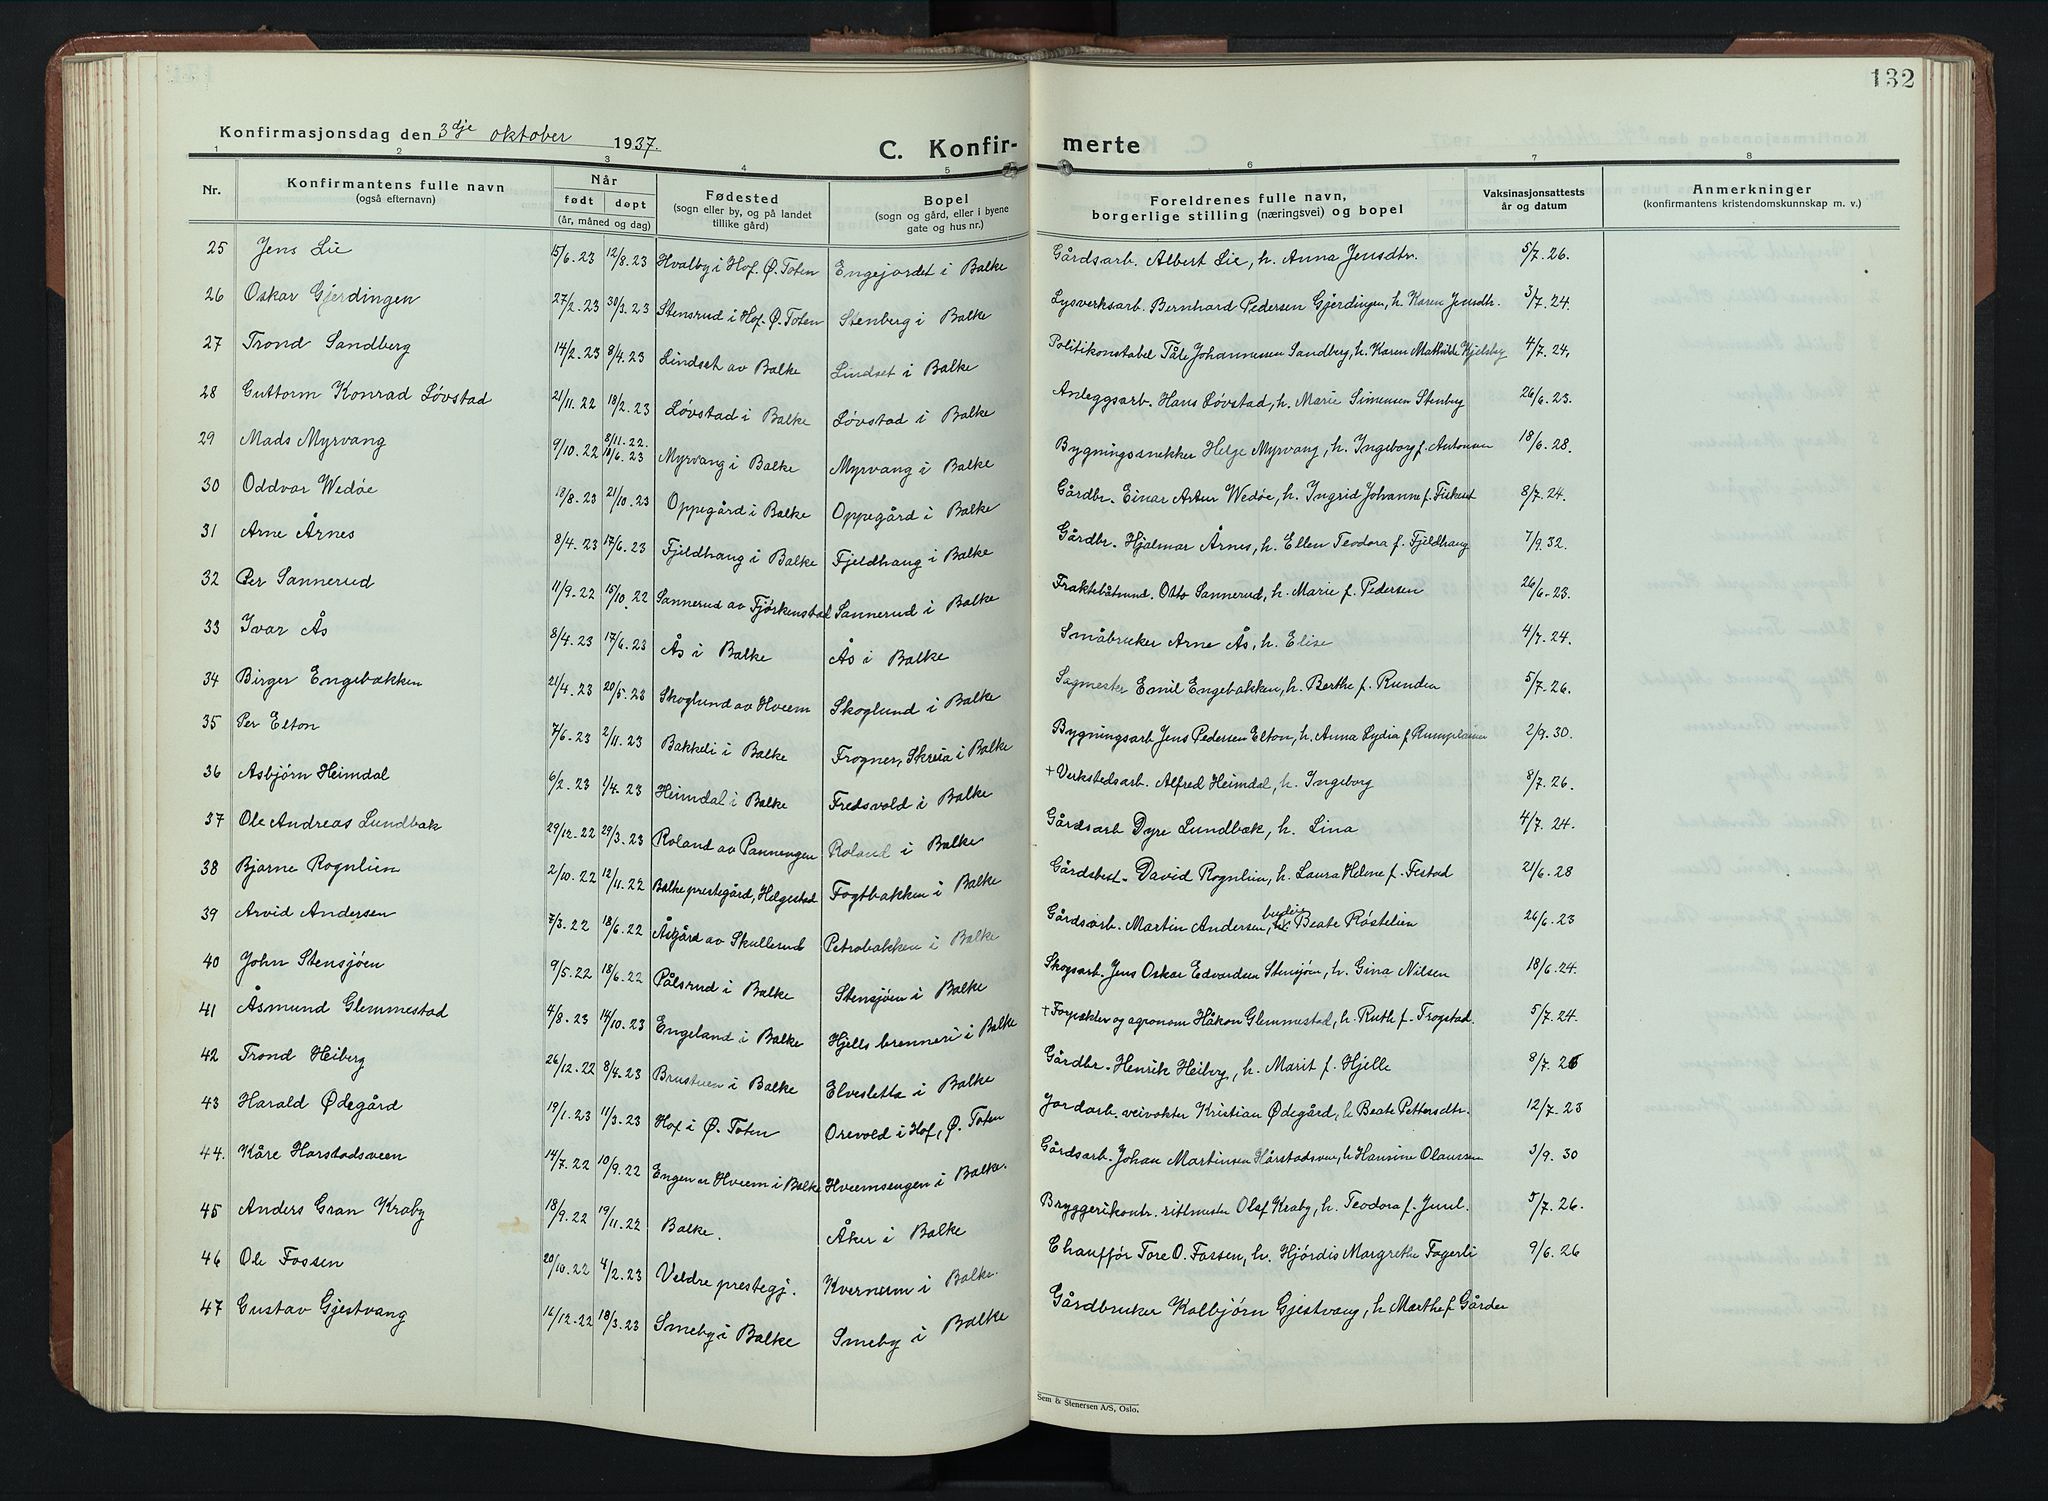 132
Konfirmasjonsdag den 3dje oktober 1937.
C. Konfirmerte
1 2 3 4 5 6 7 8
Nr. Konfirmantens fulle navn (også efternavn) Når født døpt (år, måned og dag) Fødested (sogn eller by, og på landet tillike gård) Bopel (sogn og gård, eller i byene gate og hus nr.) Foreldrenes fulle navn, borgerlige stilling (næringsvei) og bopel Vaksinasjonsattests år og datum Anmerkninger (konfirmantens kristendomskunnskap m. v.)
25 Jens Lie 15/6.23 12/8.23 Hvalby i Hof. Ø. Toten Engejordet i Balke Gårdsarb. Albert Lie, h. Anna Jensdtr. 5/7.26.
26 Oskar Gjerdingen 27/2.23 30/3.23 Stensrud i Hof. Ø. Toten Stenberg i Balke Lysverksarb. Bernhard Pedersen Gjerdingen, h. Karen Jensdtr. 3/7.24.
27 Trond Sandberg 14/2.23 8/4.23 Lindset av Balke Lindset i Balke Politikonstabel Tåle Johannessen Sandberg, h. Karen Mathilde Kjelsby 4/7.24.
28 Guttorm Konrad Løvstad 21/11.22 18/2.23 Løvstad i Balke Løvstad i Balke Anleggsarb. Hans Løvstad, h. Marie Simensen Stenberg 26/6.23.
29 Mads Myrvang 9/10.22 8/11.22. 18/6.23 Myrvang i Balke Myrvang i Balke Bygningssnekker Helge Myrvang, h. Ingeborg f. Antonsen 18/6.28.
30 Oddvar Wedøe 18/8.23 21/10.23 Oppegård i Balke Oppegård i Balke Gårdbr. Einar Artur Wedøe, h. Ingrid Johanne f. Fiskeset 8/7.24.
31 Arne Årnes 8/4.23 17/6.23 Fjeldhaug i Balke Fjeldhaug i Balke Gårdbr. Hjalmar Årnes, h. Ellen Teodora f. Fjeldhaug 7/9.32.
32 Per Sannerud 11/9.22 15/10.22 Sannerud av Fjørkenstad Sannerud i Balke Fraktebåtmnd. Otto Sannerud, h. Marie f. Pedersen 26/6.23.
33 Ivar Ås 8/4.23 17/6.23 Ås i Balke Ås i Balke Småbruker Arne Ås, h. Elise 4/7.24.
34 Birger Engebakken 21/4.23 20/5.23 Skoglund av Hveem Skoglund i Balke Sagmester Emil Engebakken, h. Berthe f. Runden 5/7.26.
35 Per Elton 7/6.23 2/11.23 Bakkeli i Balke Frogner, Skreia i Balke Bygningsarb. Jens Pedersen Elton, h. Anna Lydia f. 2/9.30.
36 Asbjørn Heimdal 6/2.23 1/4.23 Heimdal i Balke Fredsvold i Balke + Verkstedsarb. Alfred Heimdal, h. Ingeborg 8/7.26.
37 Ole Andreas Lundbak 29/12.22 29/3.23 Roland av Pannengen Roland i Balke Gårdsarb Dyre Lundbæk, h. Lina 4/7.24.
38 Bjarne Rognlien 2/10.22 12/11.22 Balke prestegård, Helgestad Fogtbakken i Balke Gårdsbest. David Rognlien, h. Laura Helene f. Fistad 21/6.28
39 Arvid Andersen 7/3.22 18/6.22 Åsgård av Skullerud Petrobakken i Balke Gårdsarb. Martin Andersen, budeie Beate Røstelien 26/6.23
40 John Stensjøen 9/5.22 18/6.22 Pålsrud i Balke Stensjøen i Balke Skogsarb. Jens Oskar Edvardsen Stensjøen, h. Gina Nilsen 18/6.24.
41 Åsmund Glemmestad 4/8.23 14/10.23 Engeland i Balke Hjells brenneri i Balke + Forpakter og agronom Håkon Glemmestad, h. Ruth f. Trogstad. 5/7.24.
42 Trond Heiberg 26/12.22 8/4.23 Brustuen i Balke Elvesletta i Balke Gårdbr. Henrik Heiberg, h. Marit f. Hjelle 8/7.26
43 Harald Ødegård 19/1.23 11/3.23 Hof i Ø. Toten Orevold i Hof, Ø. Toten Jordarb. veivokter Kristian Ødegård, h. Beate Pettersdtr. 12/7.23
44. Kåre Harstadsveen 14/7.22 10/9.22 Engen av Hveem i Balke Hveemsengen i Balke. Gårdsarb. Johan Martinsen Hårstadsveen, h. Hansine Olaussen 3/9.30
45 Anders Gran Kraby 18/9.22 19/11.22 Balke. Åker i Balke Bryggerikontr. rittmester Olaf Kraby, h. Teodora f. Juul. 5/7.26.
46 Ole Fossen 20/10.22 4/2.23 Veldre prestegj. Kvernum i Balke. Chauffør Tore O. Fossen, h. Hjørdis Margrethe Fagerli 9/6.26
47 Gustav Gjestvang 16/12.22 18/3.23 Smeby i Balke Smeby i Balke Gårdbruker Kolbjørn Gjestvang, h. Marthe f. Gårder
Sem & Stenersen A/S, Oslo.